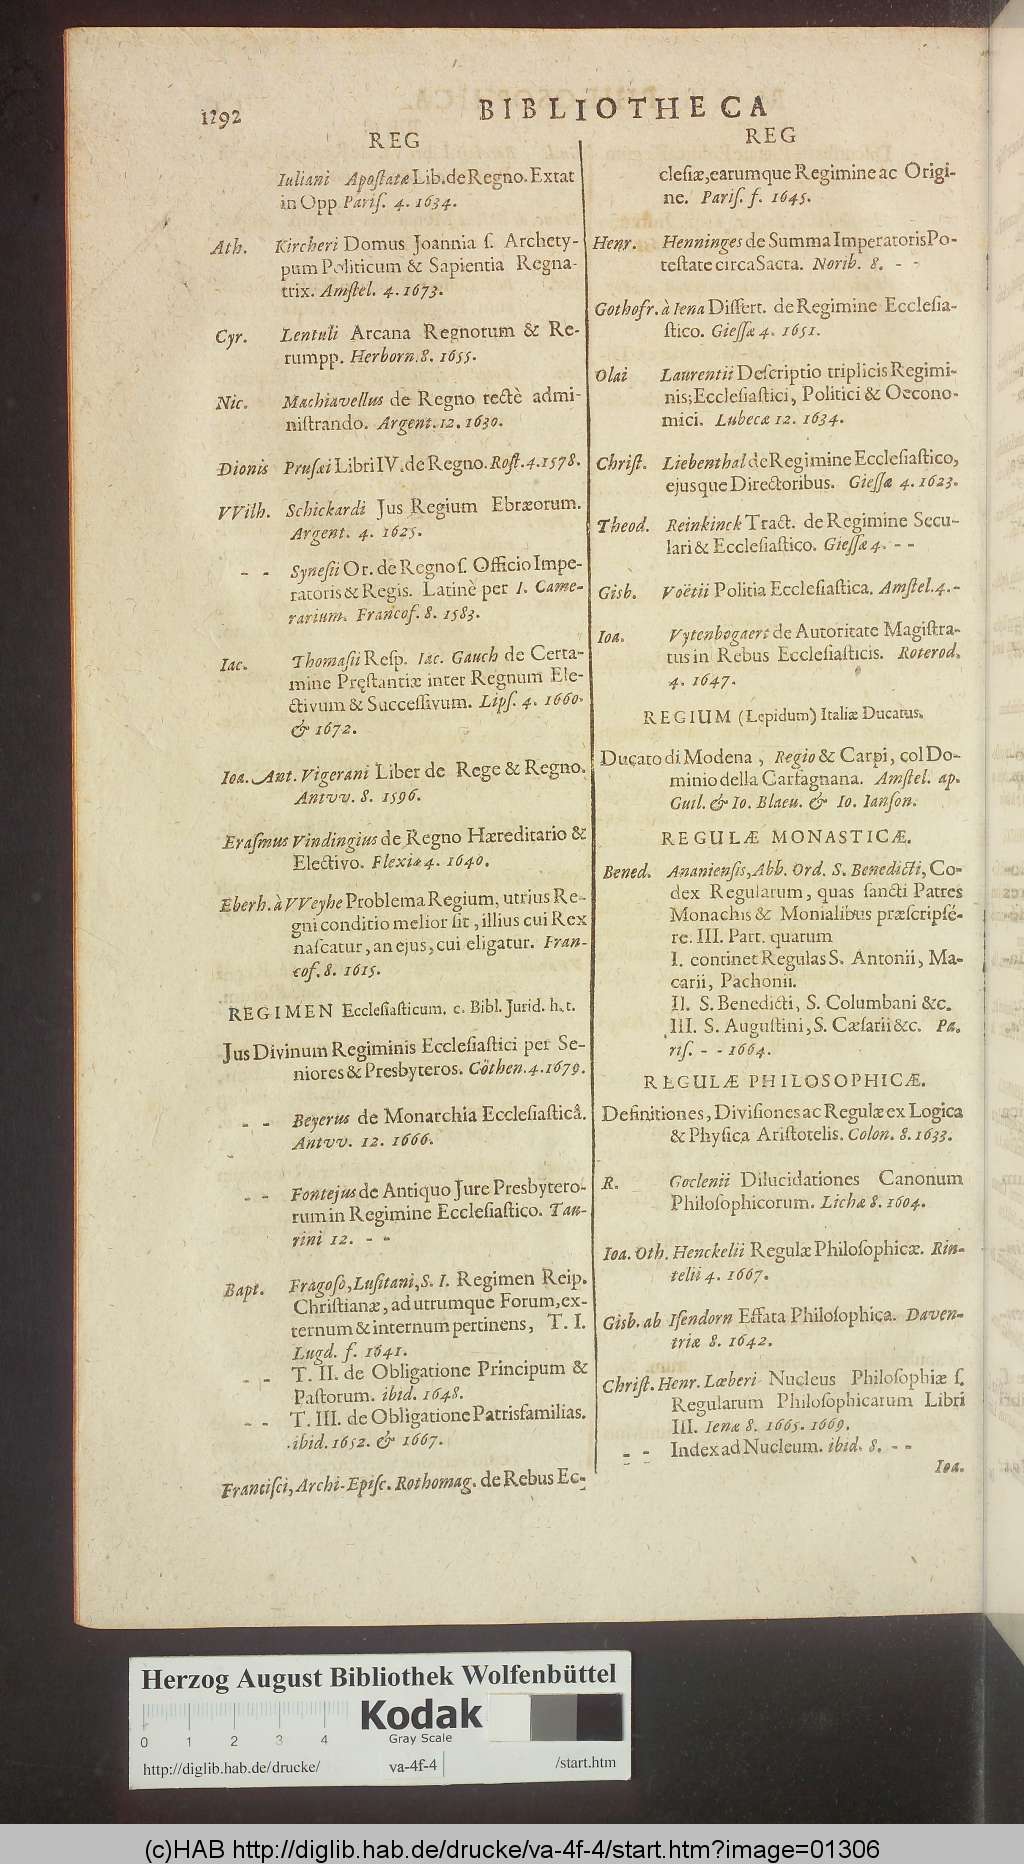 1192
BIBLIOTHECA
REG
Iuliani Apostatæ Lib. de Regno. Extat
in Opp Paris. 4. 1634.
Ath. Kircheri Domus Joannia s. Archety-
pum Politicum & Sapientia Regna-
trix. Amstel. 4. 1673.
Cyr. Lentuli Arcana Regnorum & Re-
rumpp. Herborn. 8. 1655.
Nic. Machiavellus de Regno rectè admi-
nistrando. Argent. 12. 1630.
Dionis Prusæi Libri IV. de Regno. Rost. 4. 1578.
VVilh. Schickardi Jus Regium Ebræorum.
Argent. 4. 1625.
- - Synesii Or. de Regno s. Officio Impe-
ratoris & Regis. Latinè per I. Came-
rarium. Francof. 8. 1583.
Iac. Thomasii Resp. Iac. Gauch de Certa-
mine Pręstantiæ inter Regnum Ele-
ctivum & Successivum. Lips. 4. 1660.
& 1672.
Ioa. Ant. Vigerani Liber de Rege & Regno.
Antvv. 8. 1596.
Erasmus Vindingius de Regno Hæreditario &
Electivo. Flexiæ 4. 1640.
Eberh. à VVeyhe Problema Regium, utrius Re-
gni conditio melior sit, illius cui Rex
nascatur, an ejus, cui eligatur. Fran-
cof. 8. 1615.
REGIMEN Ecclesiasticum. c. Bibl. Jurid. h. t.
Jus Divinum Regiminis Ecclesiastici per Se-
niores & Presbyteros. Cöthen. 4. 1679.
- - Beyerus de Monarchia Ecclesiasticâ.
Antvv. 12. 1666.
- - Fontejus de Antiquo Jure Presbytero-
rum in Regimine Ecclesiastico. Tau-
rini 12. - -
Bapt. Fragoso, Lusitani, S. I. Regimen Reip.
Christianæ, ad utrumque Forum, ex-
ternum & internum pertinens, T. I.
Lugd. f. 1641.
- - T. II. de Obligatione Principum &
Pastorum. ibid. 1648.
- - T. III. de Obligatione Patrisfamilias.
ibid. 1652. & 1667.
Francisci, Archi-Episc. Rothomag. de Rebus Ec-
REG
clesiæ, earumque Regimine ac Origi-
ne. Paris. f. 1645.
Henr. Henninges de Summa Imperatoris Po-
testate circa Sacra. Norib. 8. - -
Gothofr. à Iena Dissert. de Regimine Ecclesia-
stico. Giessæ 4. 1651.
Olai Laurentii Descriptio triplicis Regimi-
nis; Ecclesiastici, Politici & Oecono-
mici. Lubecæ 12. 1634.
Christ. Liebenthal de Regimine Ecclesiastico,
ejusque Directoribus. Giessæ 4. 1623.
Theod. Reinkinck Tract. de Regimine Secu-
lari & Ecclesiastico. Giessæ 4. - -
Gisb. Voëtii Politia Ecclesiastica. Amstel. 4. -
Ioa. Vytenbogaert de Autoritate Magistra-
tus in Rebus Ecclesiasticis. Roterod.
4. 1647.
REGIUM (Lepidum) Italiæ Ducatus.
Ducato di Modena, Regio & Carpi, col Do-
minio della Carfagnana. Amstel. ap.
Guil. & Io. Blaeu. & Io. Ianson.
REGULÆ MONASTICÆ.
Bened. Ananiensis, Abb. Ord. S. Benedicti, Co-
dex Regularum, quas sancti Patres
Monachis & Monialibus præscripsé-
re. III. Part. quarum
I. continet Regulas S. Antonii, Ma-
carii, Pachonii.
II. S. Benedicti, S. Columbani &c.
III. S. Augustini, S. Cæsarii &c. Pa-
ris. - - 1664.
REGULÆ PHILOSOPHICÆ.
Definitiones, Divisiones ac Regulæ ex Logica
& Physica Aristotelis. Colon. 8. 1633.
R. Goclenii Dilucidationes Canonum
Philosophicorum. Lichæ 8. 1604.
Ioa. Oth. Henckelii Regulæ Philosophicæ. Rin-
telii 4. 1667.
Gisb. ab Isendorn Effata Philosophica. Daven-
triæ 8. 1642.
Christ. Henr. Læberi Nucleus Philosophiæ s.
Regularum Philosophicarum Libri
III. Ienæ 8. 1665. 1669.
- - Index ad Nucleum. ibid. 8. - -
Ioa.
Herzog August Bibliothek Wolfenbüttel
Kodak
Gray Scale
0 1 2 3 4
http://diglib.hab.de/drucke/ va-4f-4 /start.htm
(c)HAB http://diglib.hab.de/drucke/va-4f-4/start.htm?image=01306